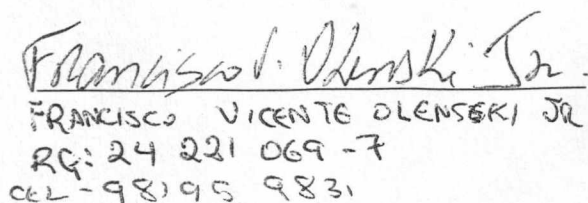 Francisco V. Olenski Jr
FRANCISCO VICENTE OLENSEKI JR
RG: 24 221 069 -7
CEL - 98195 9831